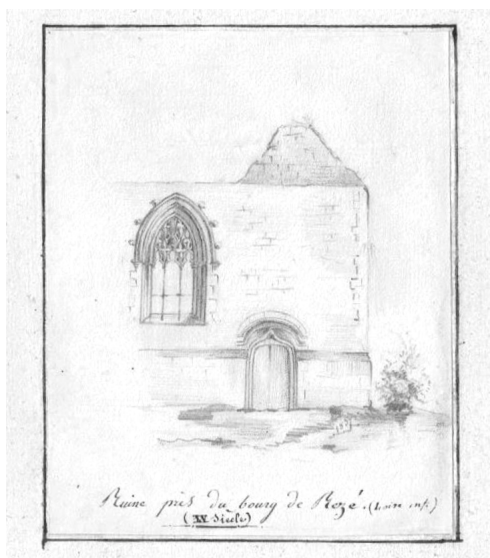 Ruine près du bourg de Rezé. (Loire inf.)
(XV Siècle)